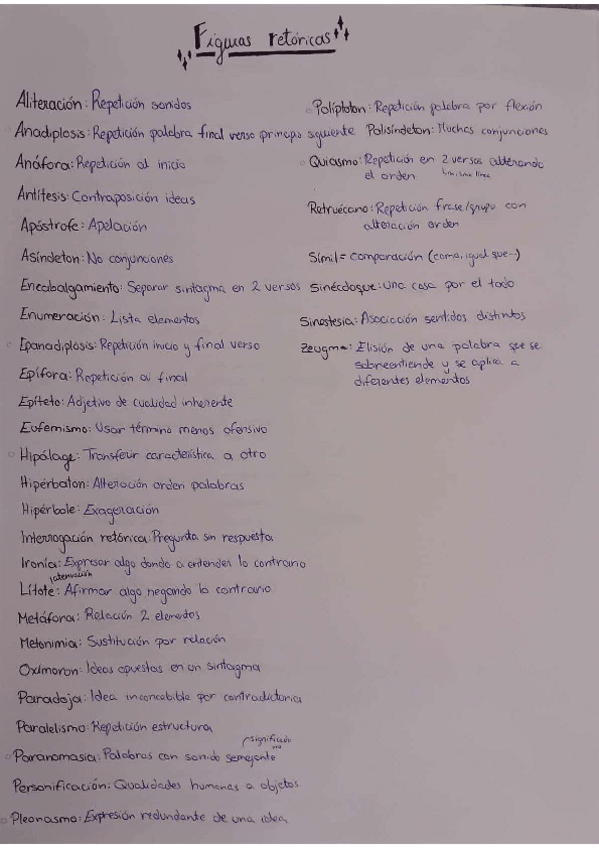 Figuras retóricas
Aliteración: Repetición sonidos
Anadiplosis: Repetición palabra final verso principo siguiente
Anáfora: Repetición al inicio
Antítesis: Contraposición ideas
Apóstrofe: Apelación
Asíndeton: No conjunciones
Encabalgamiento: Separar sintagma en 2 versos
Enumeración: Lista elementos
Epanadiplosis: Repetición inicio y final verso
Epífora: Repetición al final
Epíteto: Adjetivo de cualidad inherente
Eufemismo: Usar término menos ofensivo
Hipálage: Transferir característica a otro
Hipérbaton: Alteración orden palabras
Hipérbole: Exageración
Interrogación retórica: Pregunta sin respuesta
Ironía: Expresar algo dando a entender lo contrario
/atenuación
Lítote: Afirmar algo negando lo contrario
Metáfora: Relación 2 elementos
Metonimia: Sustitución por relación
Oxímoron: Ideas opuestas en un sintagma
Paradoja: Idea inconcebible por contradictoria
Paralelismo: Repetición estructura
significado no
Paranomasia: Palabras con sonido semejante
Personificación: Qualidades humanas a objetos
Pleonasmo: Expresión redundante de una idea
Políptoton: Repetición palabra por flexión
Polisíndeton: Muchas conjunciones
Quiasmo: Repetición en 2 versos alterando
el orden
Retruécano: Repetición frase/grupo con
alteración orden
Símil = comparación (como, igual que...)
Sinécdoque: una cosa por el todo
Sinestesia: Asociación sentidos distintos
Zeugma: Elisión de una palabra que se
sobreentiende y se aplica a
diferentes elementos